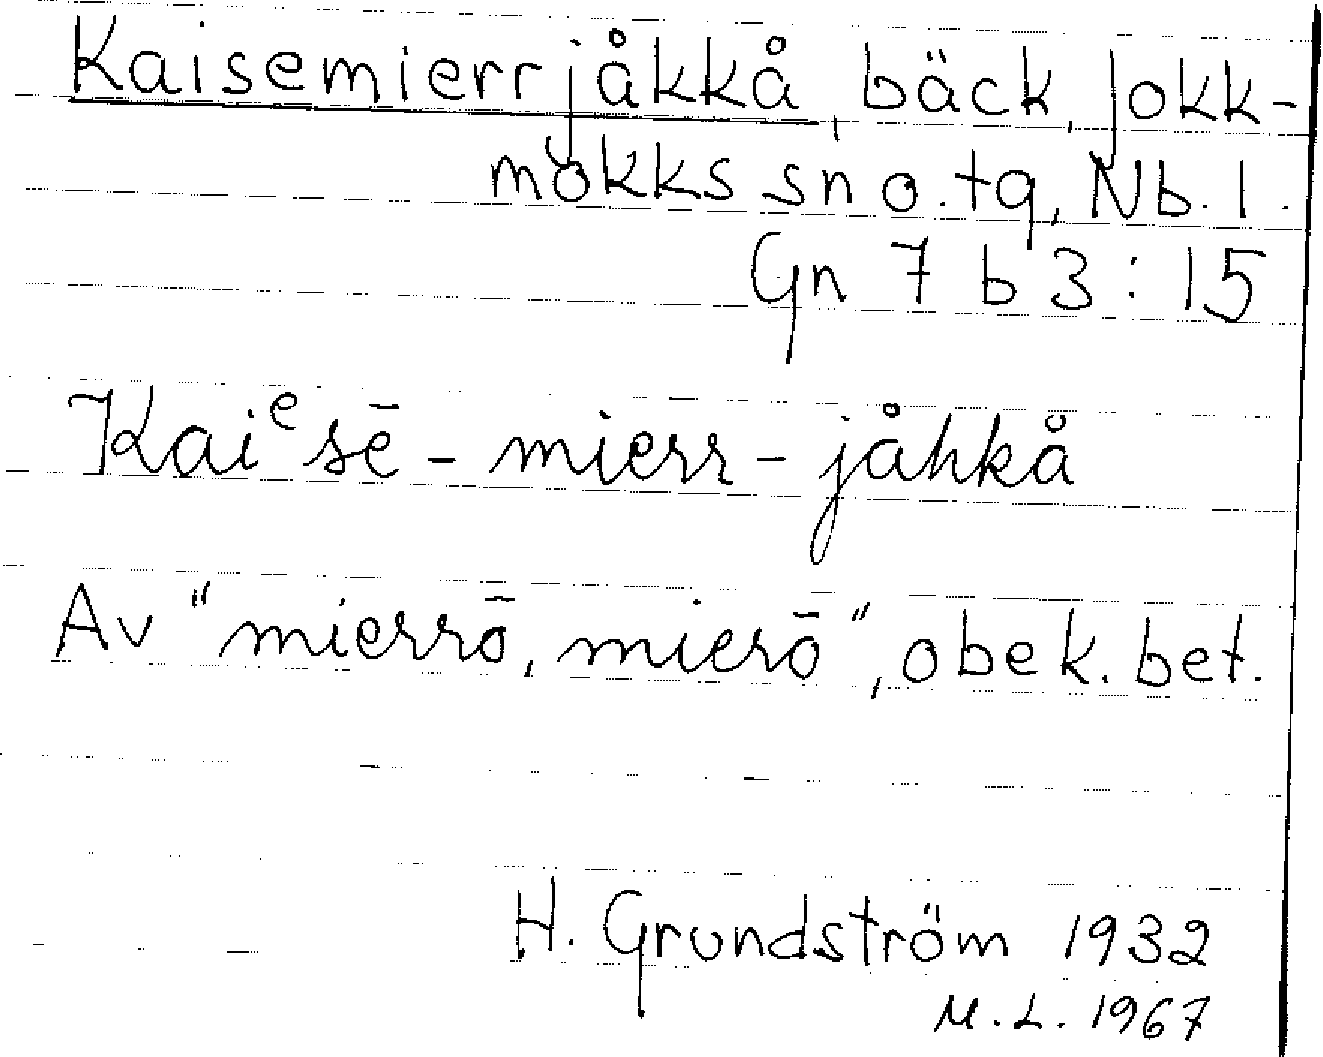 Kaisemierrjåkkå, bäck, Jokk-
mokks sn o. tg, Nb. l.
Gn 7 b 3 : 15
Kaiᵉsē - mierr - jåhkå
Av "mierrō, mierō", obek. bet.
H. Grundström 1932
M. L. 1967